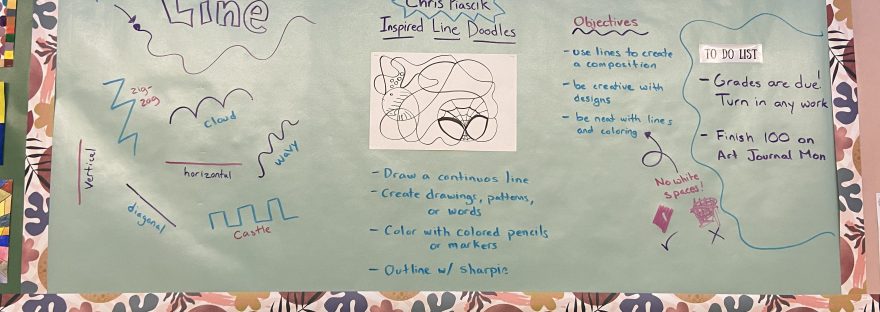 Line
zig-
zag
cloud
Vertical
horizontal
wavy
diagonal
Castle
Chris Piascik
Inspired Line Doodles
- Draw a continuos line
- Create drawings, patterns,
or words
- Color with colored pencils
or markers
- Outline w/ sharpie
Objectives
- use lines to create
a composition
- be creative with
designs
- be neat with lines
and coloring
No white
spaces!
TO DO LIST
- Grades are due!
Turn in any work
- Finish 100 on
Art Journal Mon